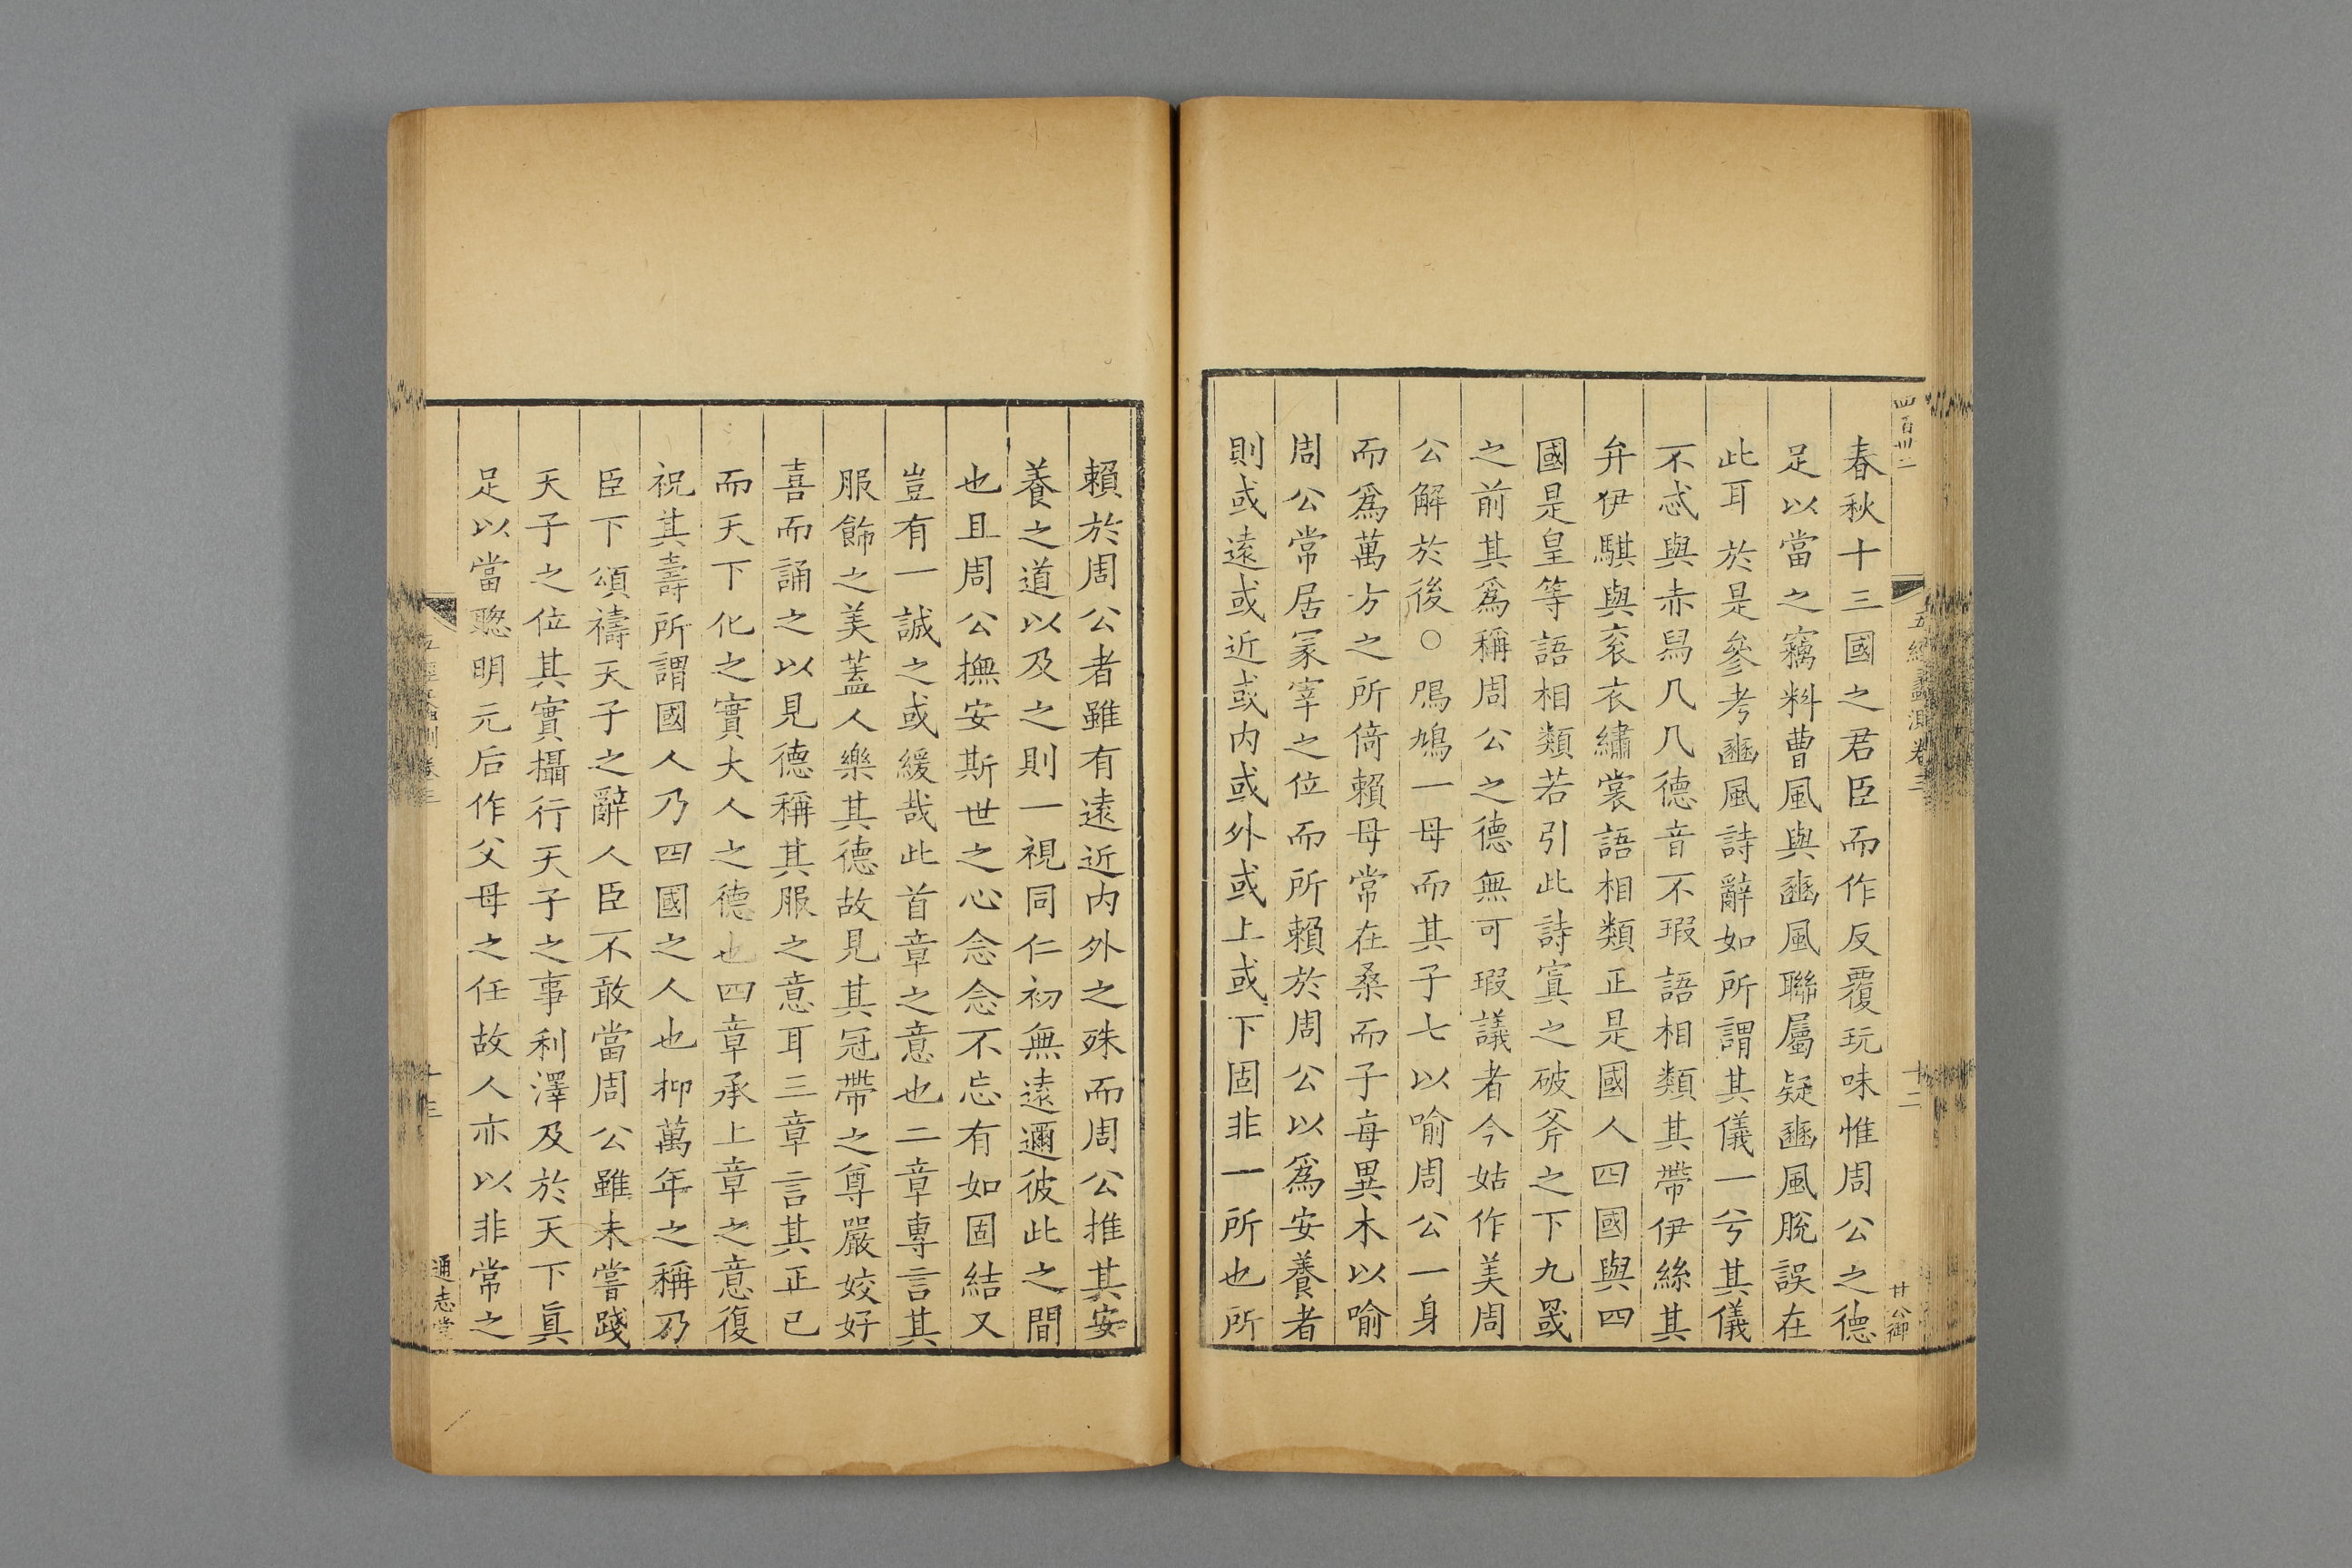 四百卅二
五經蠡測卷三
十二
甘公御
春秋十三國之君臣而作反覆玩味惟周公之德
足以當之竊料曹風與豳風聯屬疑豳風脫誤在
此耳於是參考豳風詩辭如所謂其儀一兮其儀
不忒與赤舄几几德音不瑕語相類其帶伊絲其
弁伊騏與衮衣繡裳語相類正是國人四國與四
國是皇等語相類若引此詩寘之破斧之下九罭
之前其爲稱周公之德無可瑕議者今姑作美周
公解於後○鳲鳩一母而其子七以喻周公一身
而爲萬方之所倚賴母常在桑而子每異木以喻
周公常居冢宰之位而所賴於周公以爲安養者
則或遠或近或内或外或上或下固非一所也所
賴於周公者雖有遠近内外之殊而周公推其安
養之道以及之則一視同仁初無遠邇彼此之間
也且周公撫安斯世之心念念不忘有如固結又
豈有一誠之或緩哉此首章之意也二章專言其
服飾之美蓋人樂其德故見其冠帶之尊嚴姣好
喜而誦之以見德稱其服之意耳三章言其正己
而天下化之實大人之德也四章承上章之意復
祝其壽所謂國人乃四國之人也抑萬年之稱乃
臣下頌禱天子之辭人臣不敢當周公雖未嘗踐
天子之位其實攝行天子之事利澤及於天下眞
足以當聰明元后作父母之任故人亦以非常之
十三
通志堂